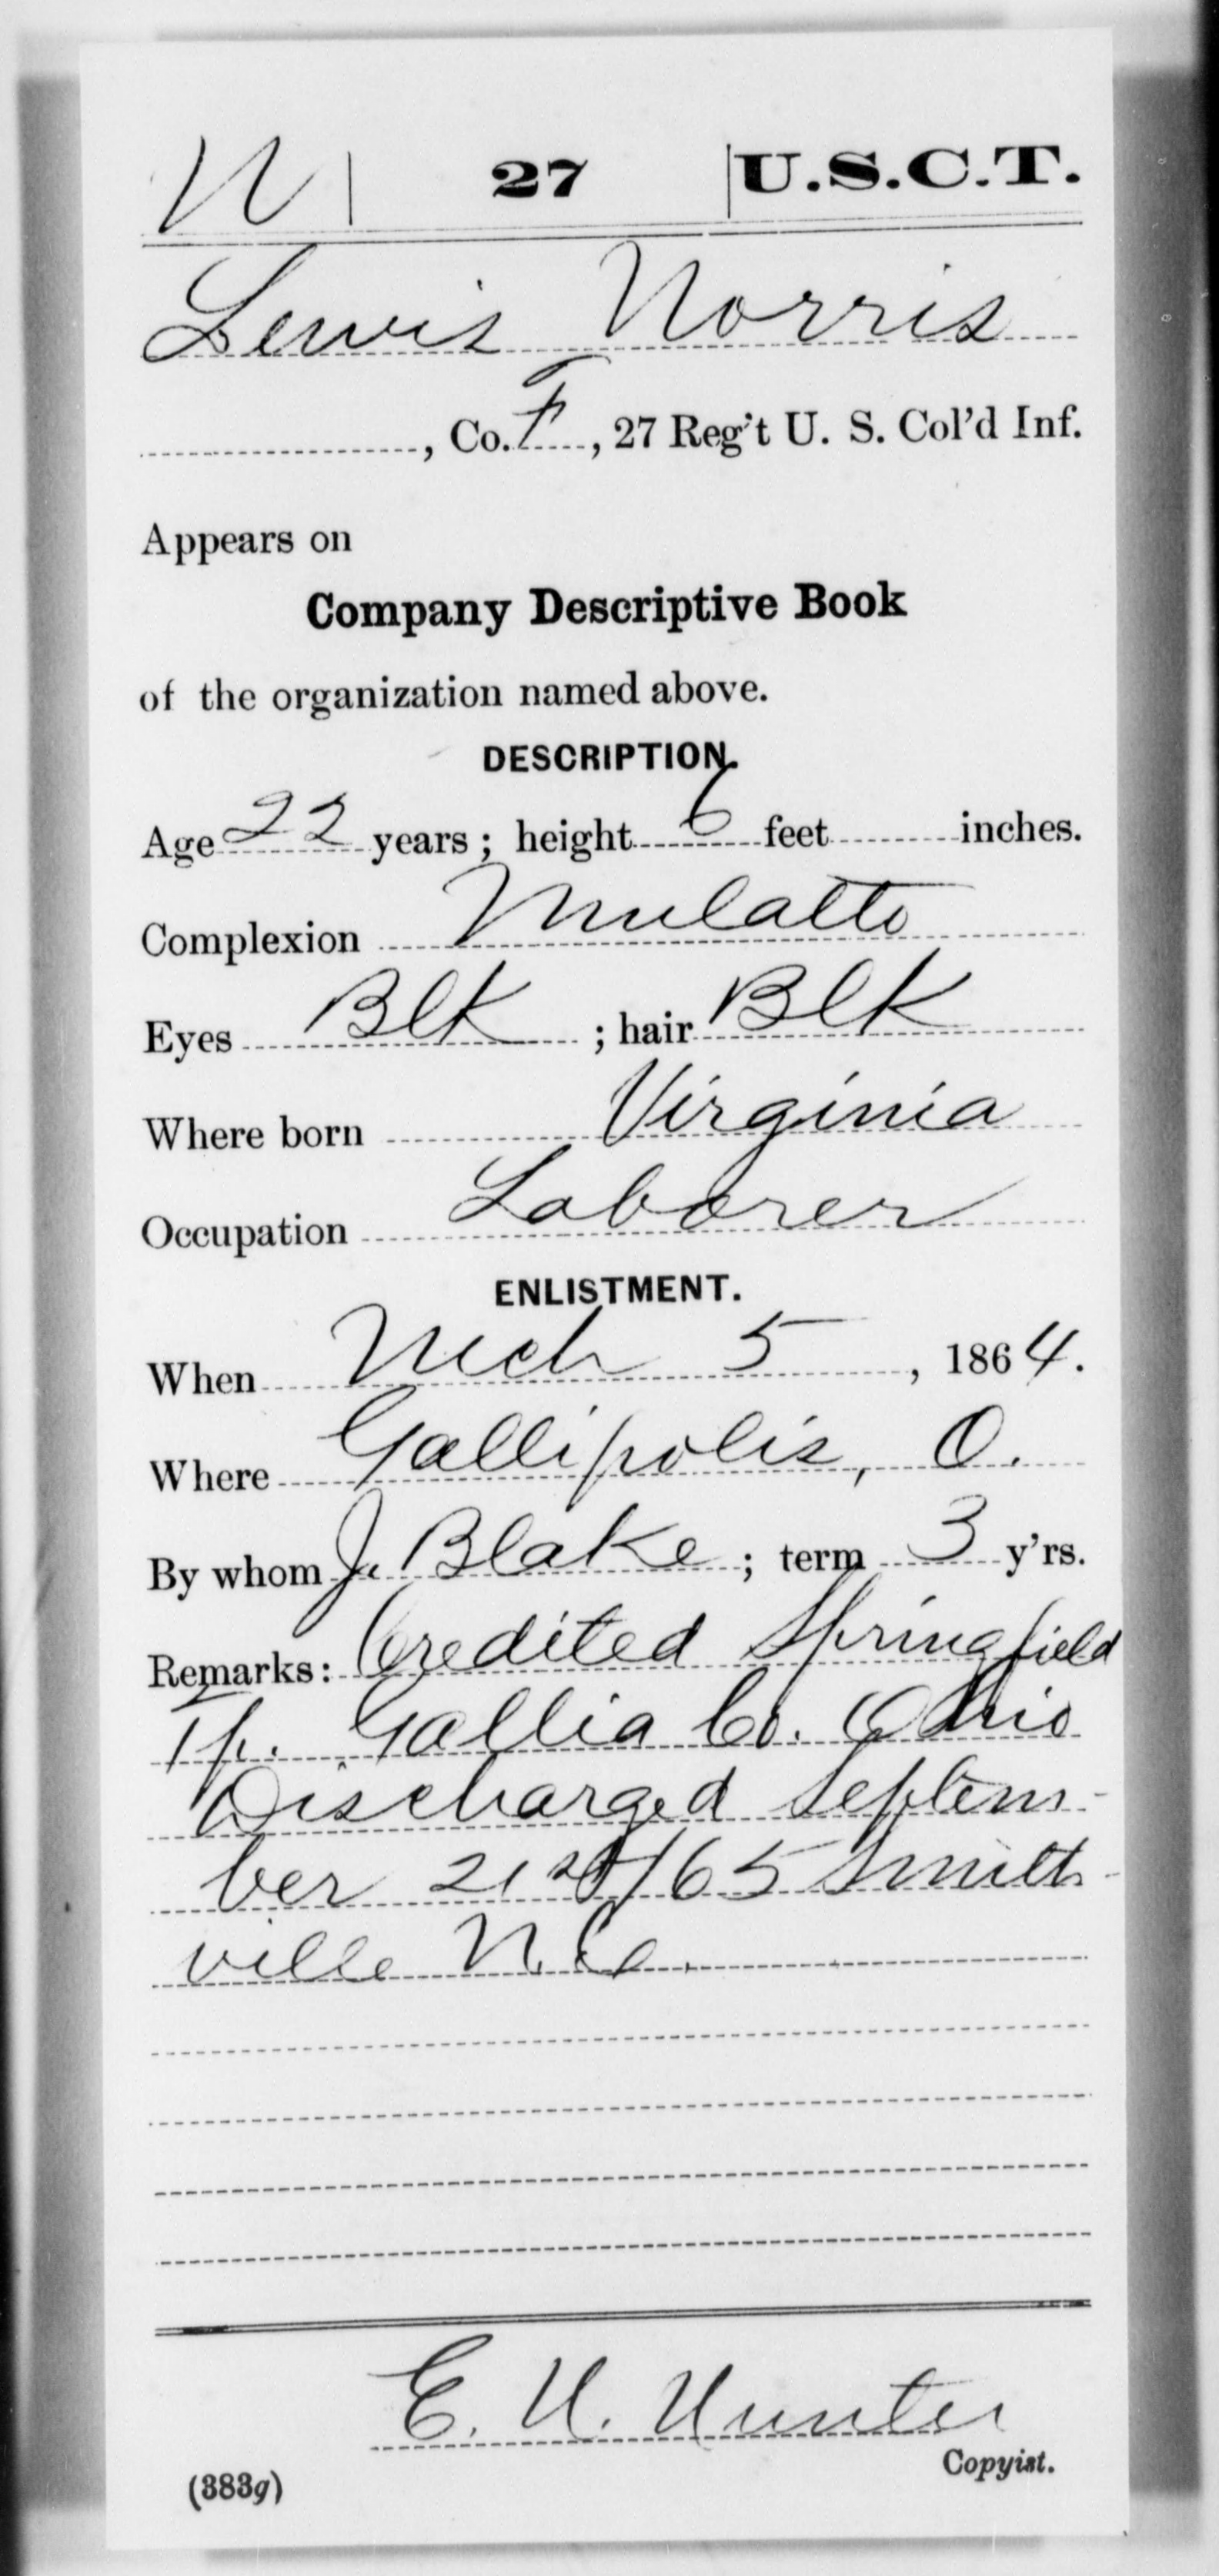 N | 27 | U.S.C.T.
Lewis Norris
, Co. F, 27 Reg't U. S. Col'd Inf.
Appears on
Company Descriptive Book
of the organization named above.
DESCRIPTION.
Age 22 years; height 6 feet inches.
Complexion Mulatto
Eyes Blk; hair Blk
Where born Virginia
Occupation Laborer
ENLISTMENT.
When Mch 5, 1864.
Where Gallipolis, O.
By whom J. Blake; term 3 y'rs.
Remarks: Credited Springfield
Tp. Gallia Co. Ohio
Discharged Septem-
ber 21st/65 Smith-
ville N.C.
E. H. Hunter
Copyist.
(383g)